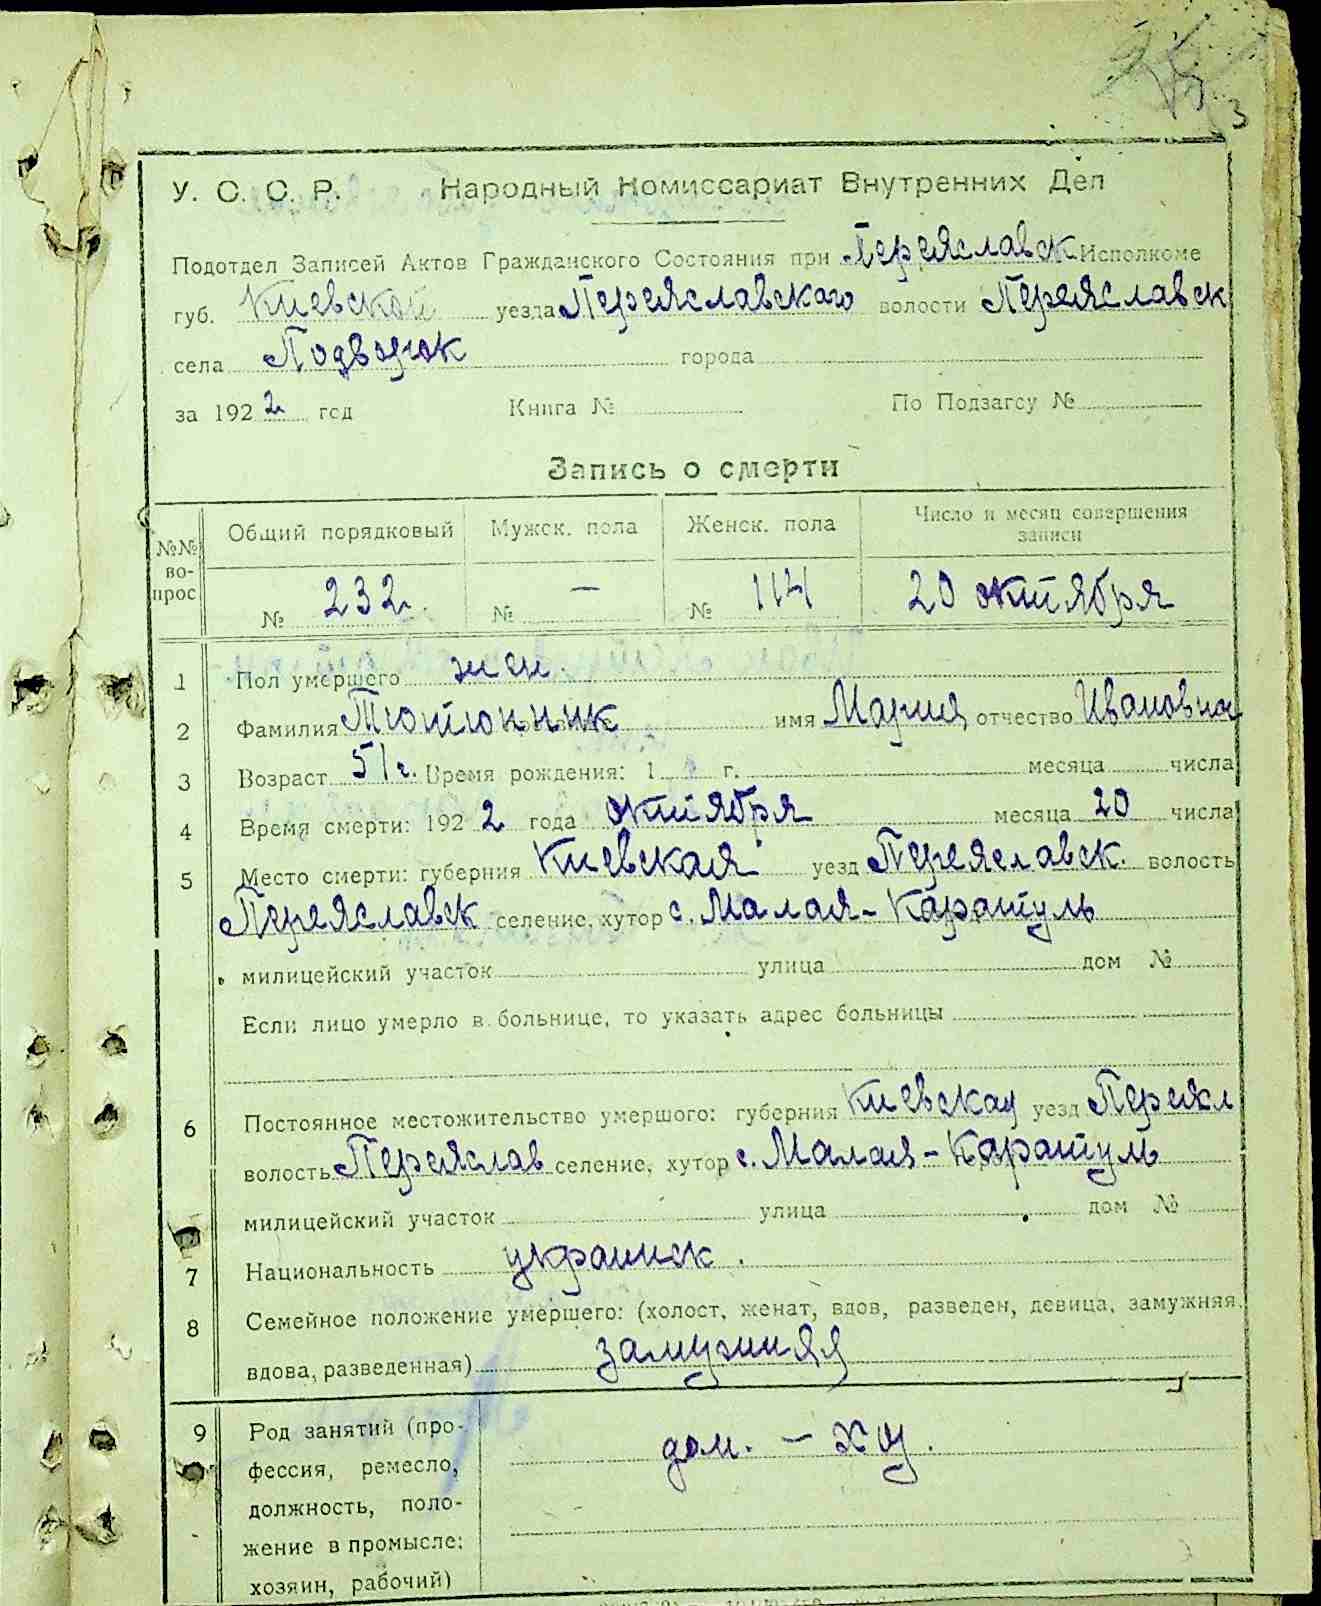 3
У. С. С. Р. Народный Комиссариат Внутренних Дел
Подотдел Записей Актов Гражданского Состояния при Переяславск Исполкоме
губ. Киевской уезда Переяславскаго волости Переяславск
села Подворок города
за 1922 год Книга № По Подзагсу №
Запись о смерти
№№ вопрос Общий порядковый Мужск. пола Женск. пола Число и месяц совершения записи
№ 232 № — № 114 20 октября
1 Пол умершего жен.
2 Фамилия Тютюнник имя Мария отчество Ивановна
3 Возраст 51 г. Время рождения: 1 г. месяца числа
4 Время смерти: 1922 года октября месяца 20 числа
5 Место смерти: губерния Киевская уезд Переяславск. волость
Переяславск селение, хутор с. Малая-Каратуль
милицейский участок улица дом №
Если лицо умерло в больнице, то указать адрес больницы
6 Постоянное местожительство умершого: губерния Киевская уезд Переясл
волость Переяслав селение, хутор с. Малая-Каратуль
милицейский участок улица дом №
7 Национальность украинск.
8 Семейное положение умершего: (холост, женат, вдов, разведен, девица, замужняя,
вдова, разведенная) замужняя
9 Род занятий (про-
фессия, ремесло, дом. – хоз.
должность, поло-
жение в промысле:
хозяин, рабочий)